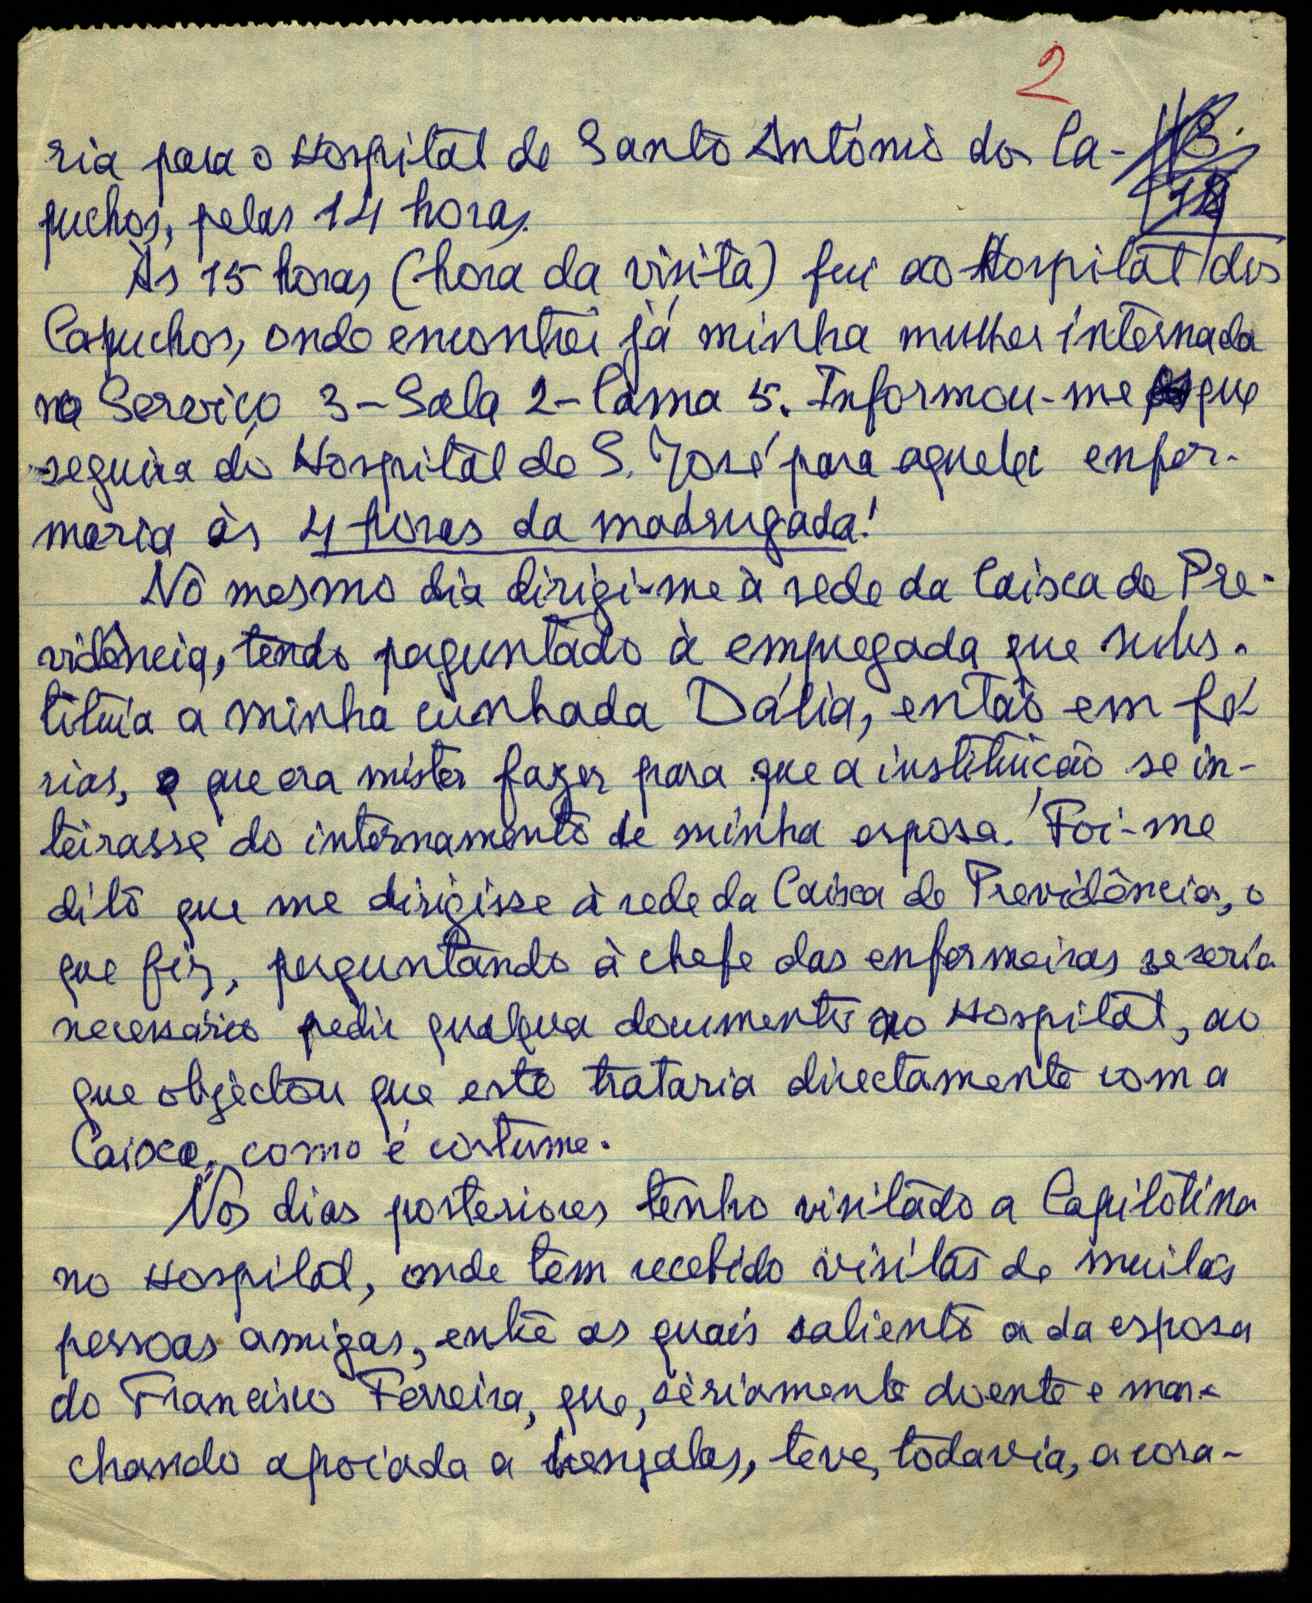 2
ria para o Hospital de Santo António dos Ca-
puchos, pelas 14 horas.
Às 15 horas (hora da visita) fui ao Hospital dos
Capuchos, onde encontrei já minha mulher internada
no Serviço 3-Sala 2-Cama 5. Informou-me que
seguira do Hospital de S. José para aquela enfer-
maria às 4 horas da madrugada!
No mesmo dia dirigi-me à sede da Caixa de Pre-
vidência, tendo perguntado à empregada que subs-
tituia a minha cunhada Dália, então em fé-
rias, o que era mister fazer para que a instituição se in-
teirasse do internamento de minha esposa. Foi-me
dito que me dirigisse à sede da Caixa de Previdência, o
que fiz, perguntando à chefe das enfermeiras se seria
necessário pedir qualquer documento ao Hospital, ao
que objectou que este trataria directamente com a
Caixa, como é costume.
Nos dias posteriores tenho visitado a Capitolina
no Hospital, onde tem recebido visitas de muitas
pessoas amigas, entre as quais saliento a da esposa
do Francisco Ferreira, que, sèriamente doente e mar-
chando apoiada a bengalas, teve, todavia, a cora-